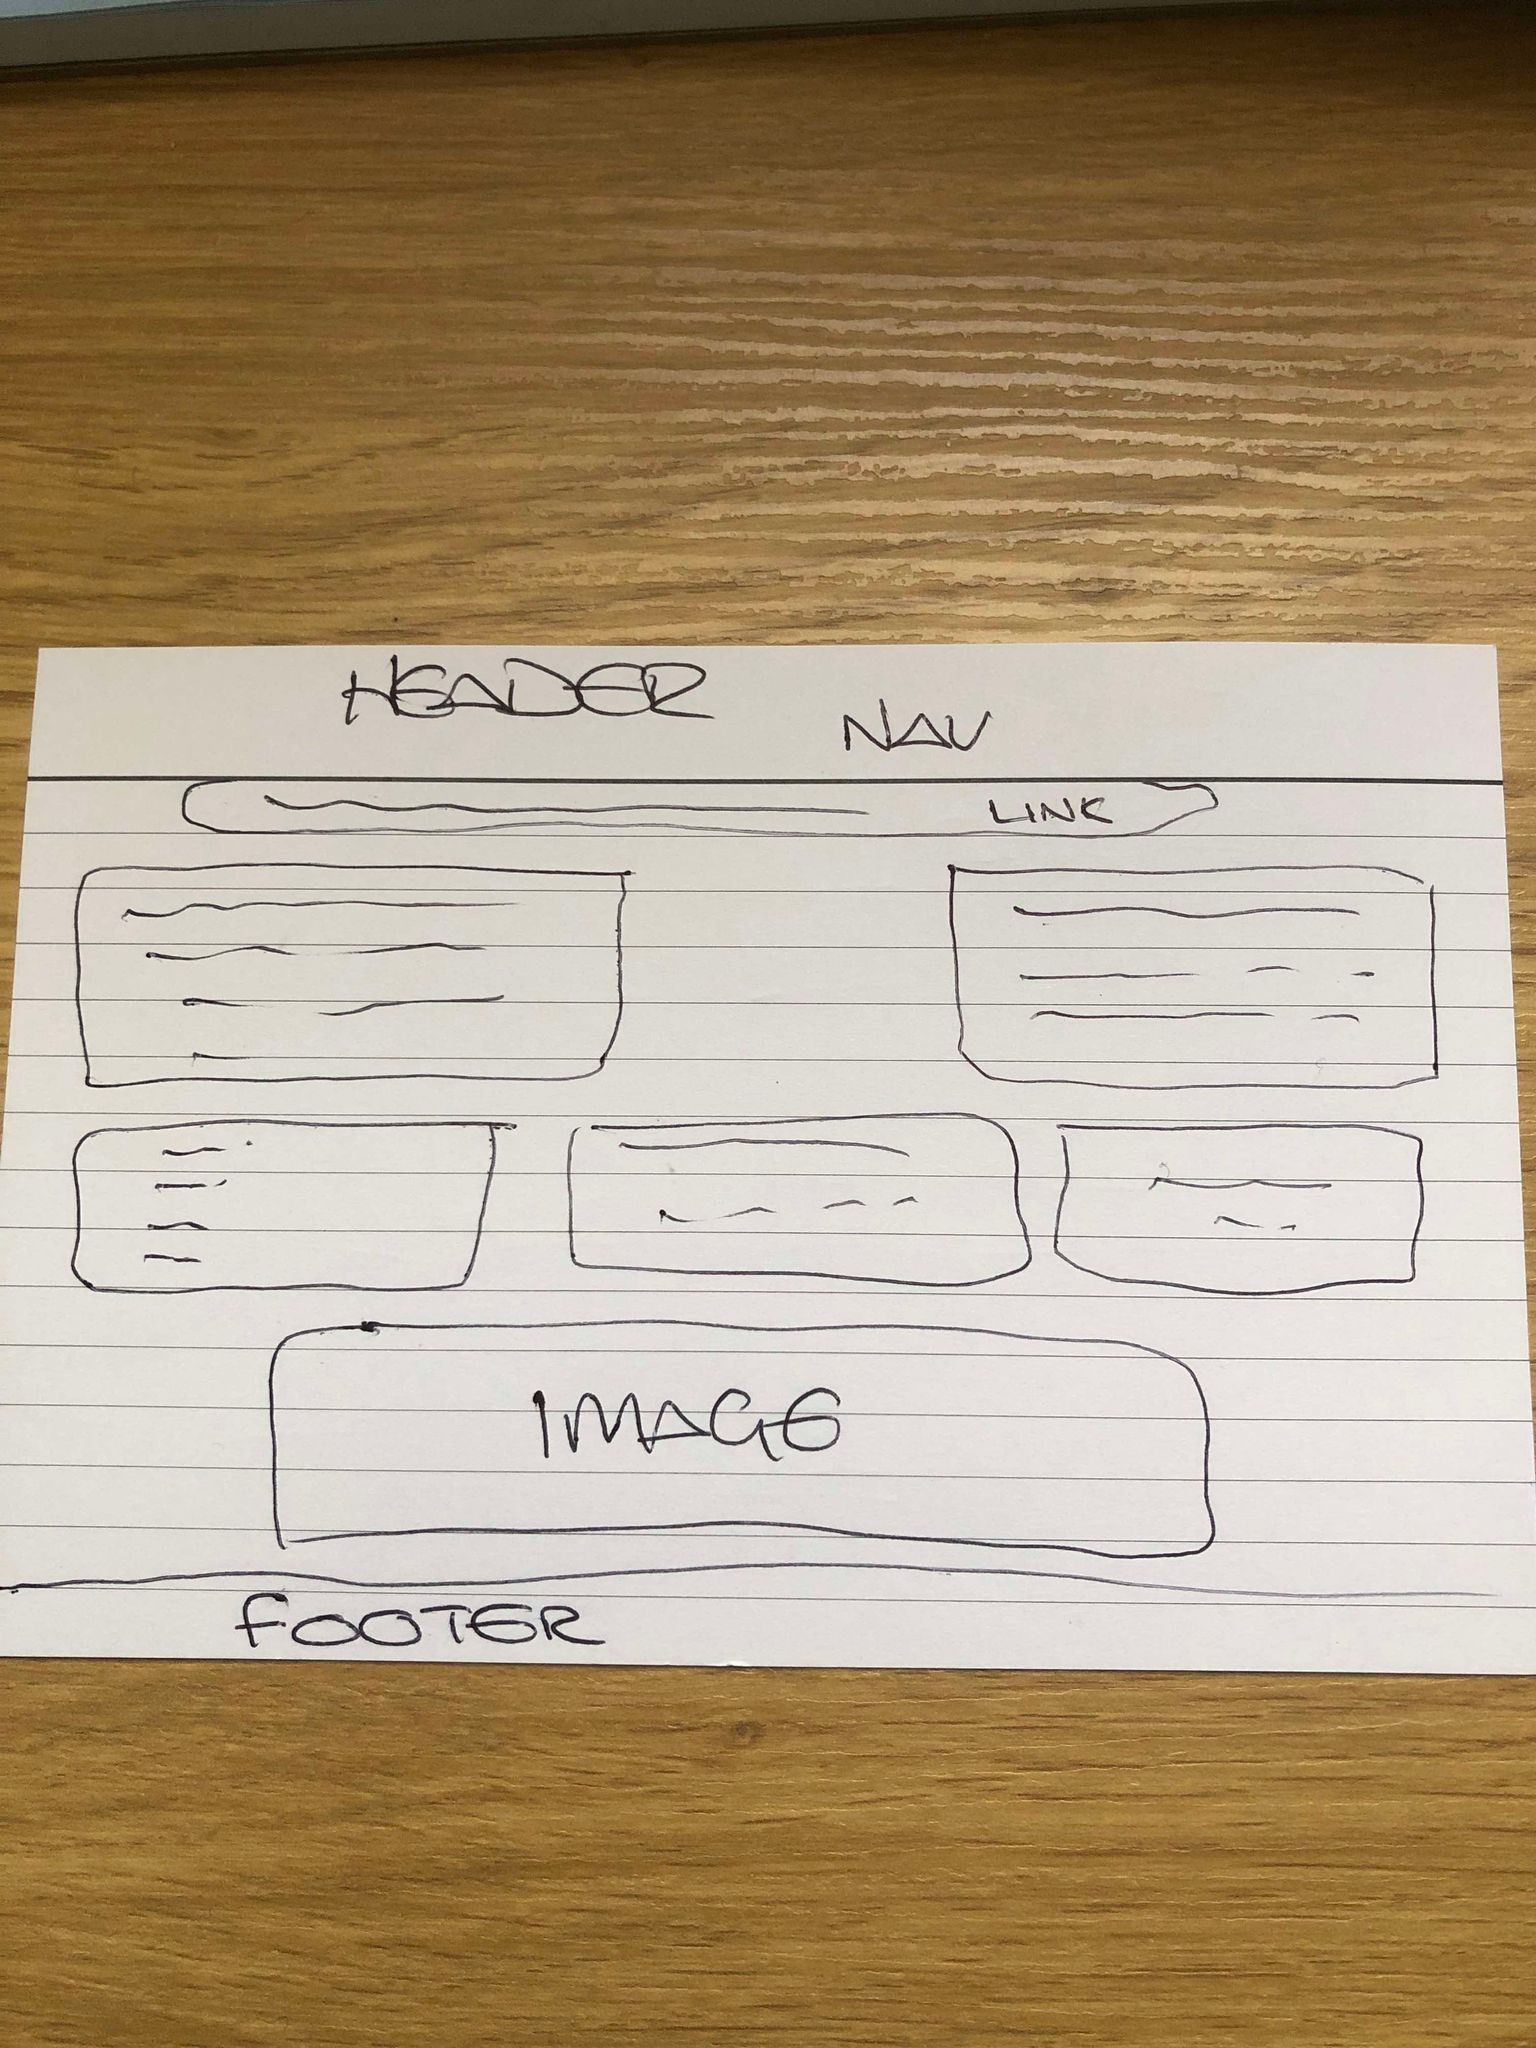 HEADER
NAV
LINK
IMAGE
FOOTER